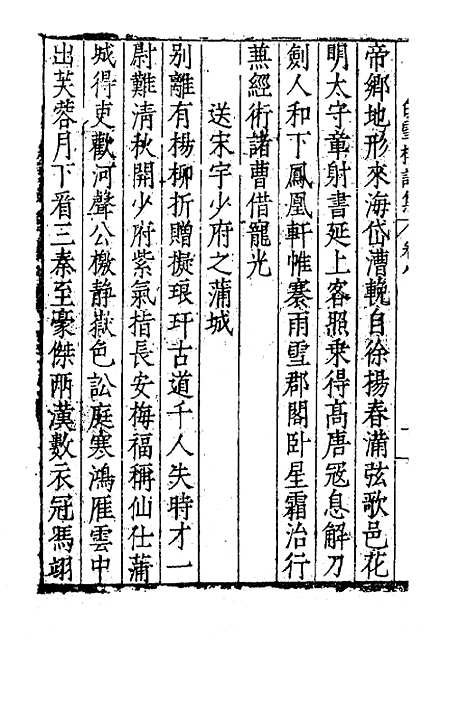 帝鄉地形來海岱漕輓自徐揚春滿弦歌邑花
明太守章射書延上客照乗得髙唐冦息解刀
劍人和下鳳凰軒帷褰雨雪郡閣卧星霜治行
兼經術諸曹借寵光
送宋字少府之蒲城
别離有楊柳折贈擬琅玕古道千人失時才一
尉難清秋開少府紫氣指長安梅福稱仙仕蒲
城得吏歡河聲公檄静嶽色訟庭寒鴻雁雲中
出芙蓉月下看三秦至豪傑兩漢數衣冠馮翊
白雪樓詩集 卷八